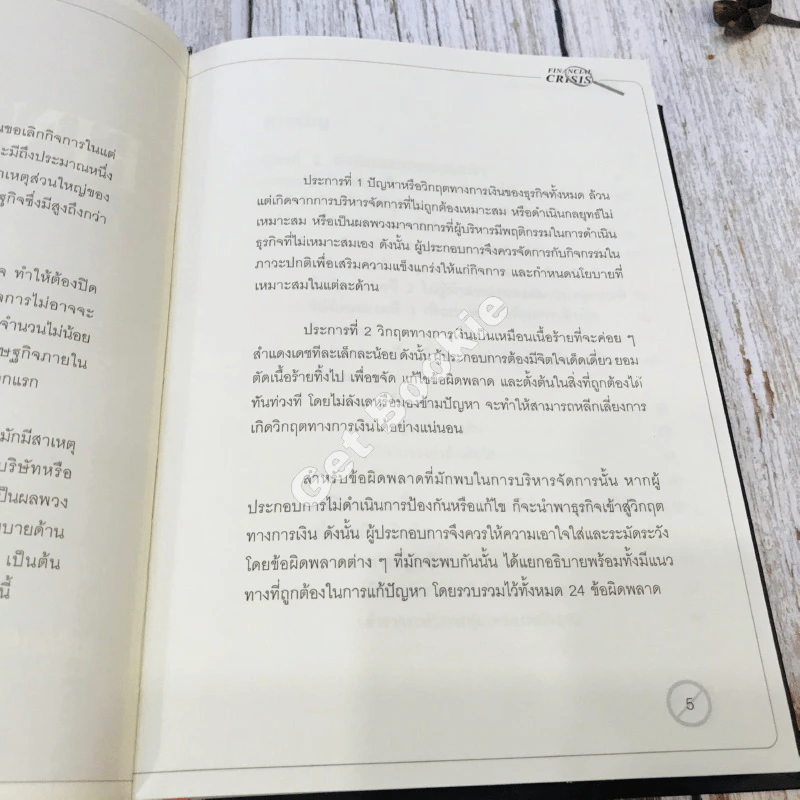 นขอเลิกกิจการในแต่
ะมีถึงประมาณหนึ่ง
าเหตุส่วนใหญ่ของ
ฐกิจซึ่งมีสูงถึงกว่า
จ ทำให้ต้องปิด
ลการไม่อาจจะ
จำนวนไม่น้อย
ษฐกิจภายใน
กแรก
มักมีสาเหตุ
บริษัทหรือ
ป็นผลพวง
บายด้าน
เป็นต้น
นี้
FINANCIAL
CRISIS
ประการที่ 1 ปัญหาหรือวิกฤตทางการเงินของธุรกิจทั้งหมด ล้วน
แต่เกิดจากการบริหารจัดการที่ไม่ถูกต้องเหมาะสม หรือดำเนินกลยุทธ์ไม่
เหมาะสม หรือเป็นผลพวงมาจากการที่ผู้บริหารมีพฤติกรรมในการดำเนิน
ธุรกิจที่ไม่เหมาะสมเอง ดังนั้น ผู้ประกอบการจึงควรจัดการกับกิจกรรมใน
ภาวะปกติเพื่อเสริมความแข็งแกร่งให้แก่กิจการ และกำหนดนโยบายที่
เหมาะสมในแต่ละด้าน
ประการที่ 2 วิกฤตทางการเงินเป็นเหมือนเนื้อร้ายที่จะค่อย ๆ
สำแดงเดชทีละเล็กละน้อย ดังนั้น ผู้ประกอบการต้องมีจิตใจเด็ดเดี่ยว ยอม
ตัดเนื้อร้ายทิ้งไป เพื่อขจัด แก้ไขข้อผิดพลาด และตั้งต้นในสิ่งที่ถูกต้องได้
ทันท่วงที โดยไม่ลังเลหรือมองข้ามปัญหา จะทำให้สามารถหลีกเลี่ยงการ
เกิดวิกฤตทางการเงินได้อย่างแน่นอน
สำหรับข้อผิดพลาดที่มักพบในการบริหารจัดการนั้น หากผู้
ประกอบการไม่ดำเนินการป้องกันหรือแก้ไข ก็จะนำพาธุรกิจเข้าสู่วิกฤต
ทางการเงิน ดังนั้น ผู้ประกอบการจึงควรให้ความเอาใจใส่และระมัดระวัง
โดยข้อผิดพลาดต่าง ๆ ที่มักจะพบกันนั้น ได้แยกอธิบายพร้อมทั้งมีแนว
ทางที่ถูกต้องในการแก้ปัญหา โดยรวบรวมไว้ทั้งหมด 24 ข้อผิดพลาด
5
Get Bookie